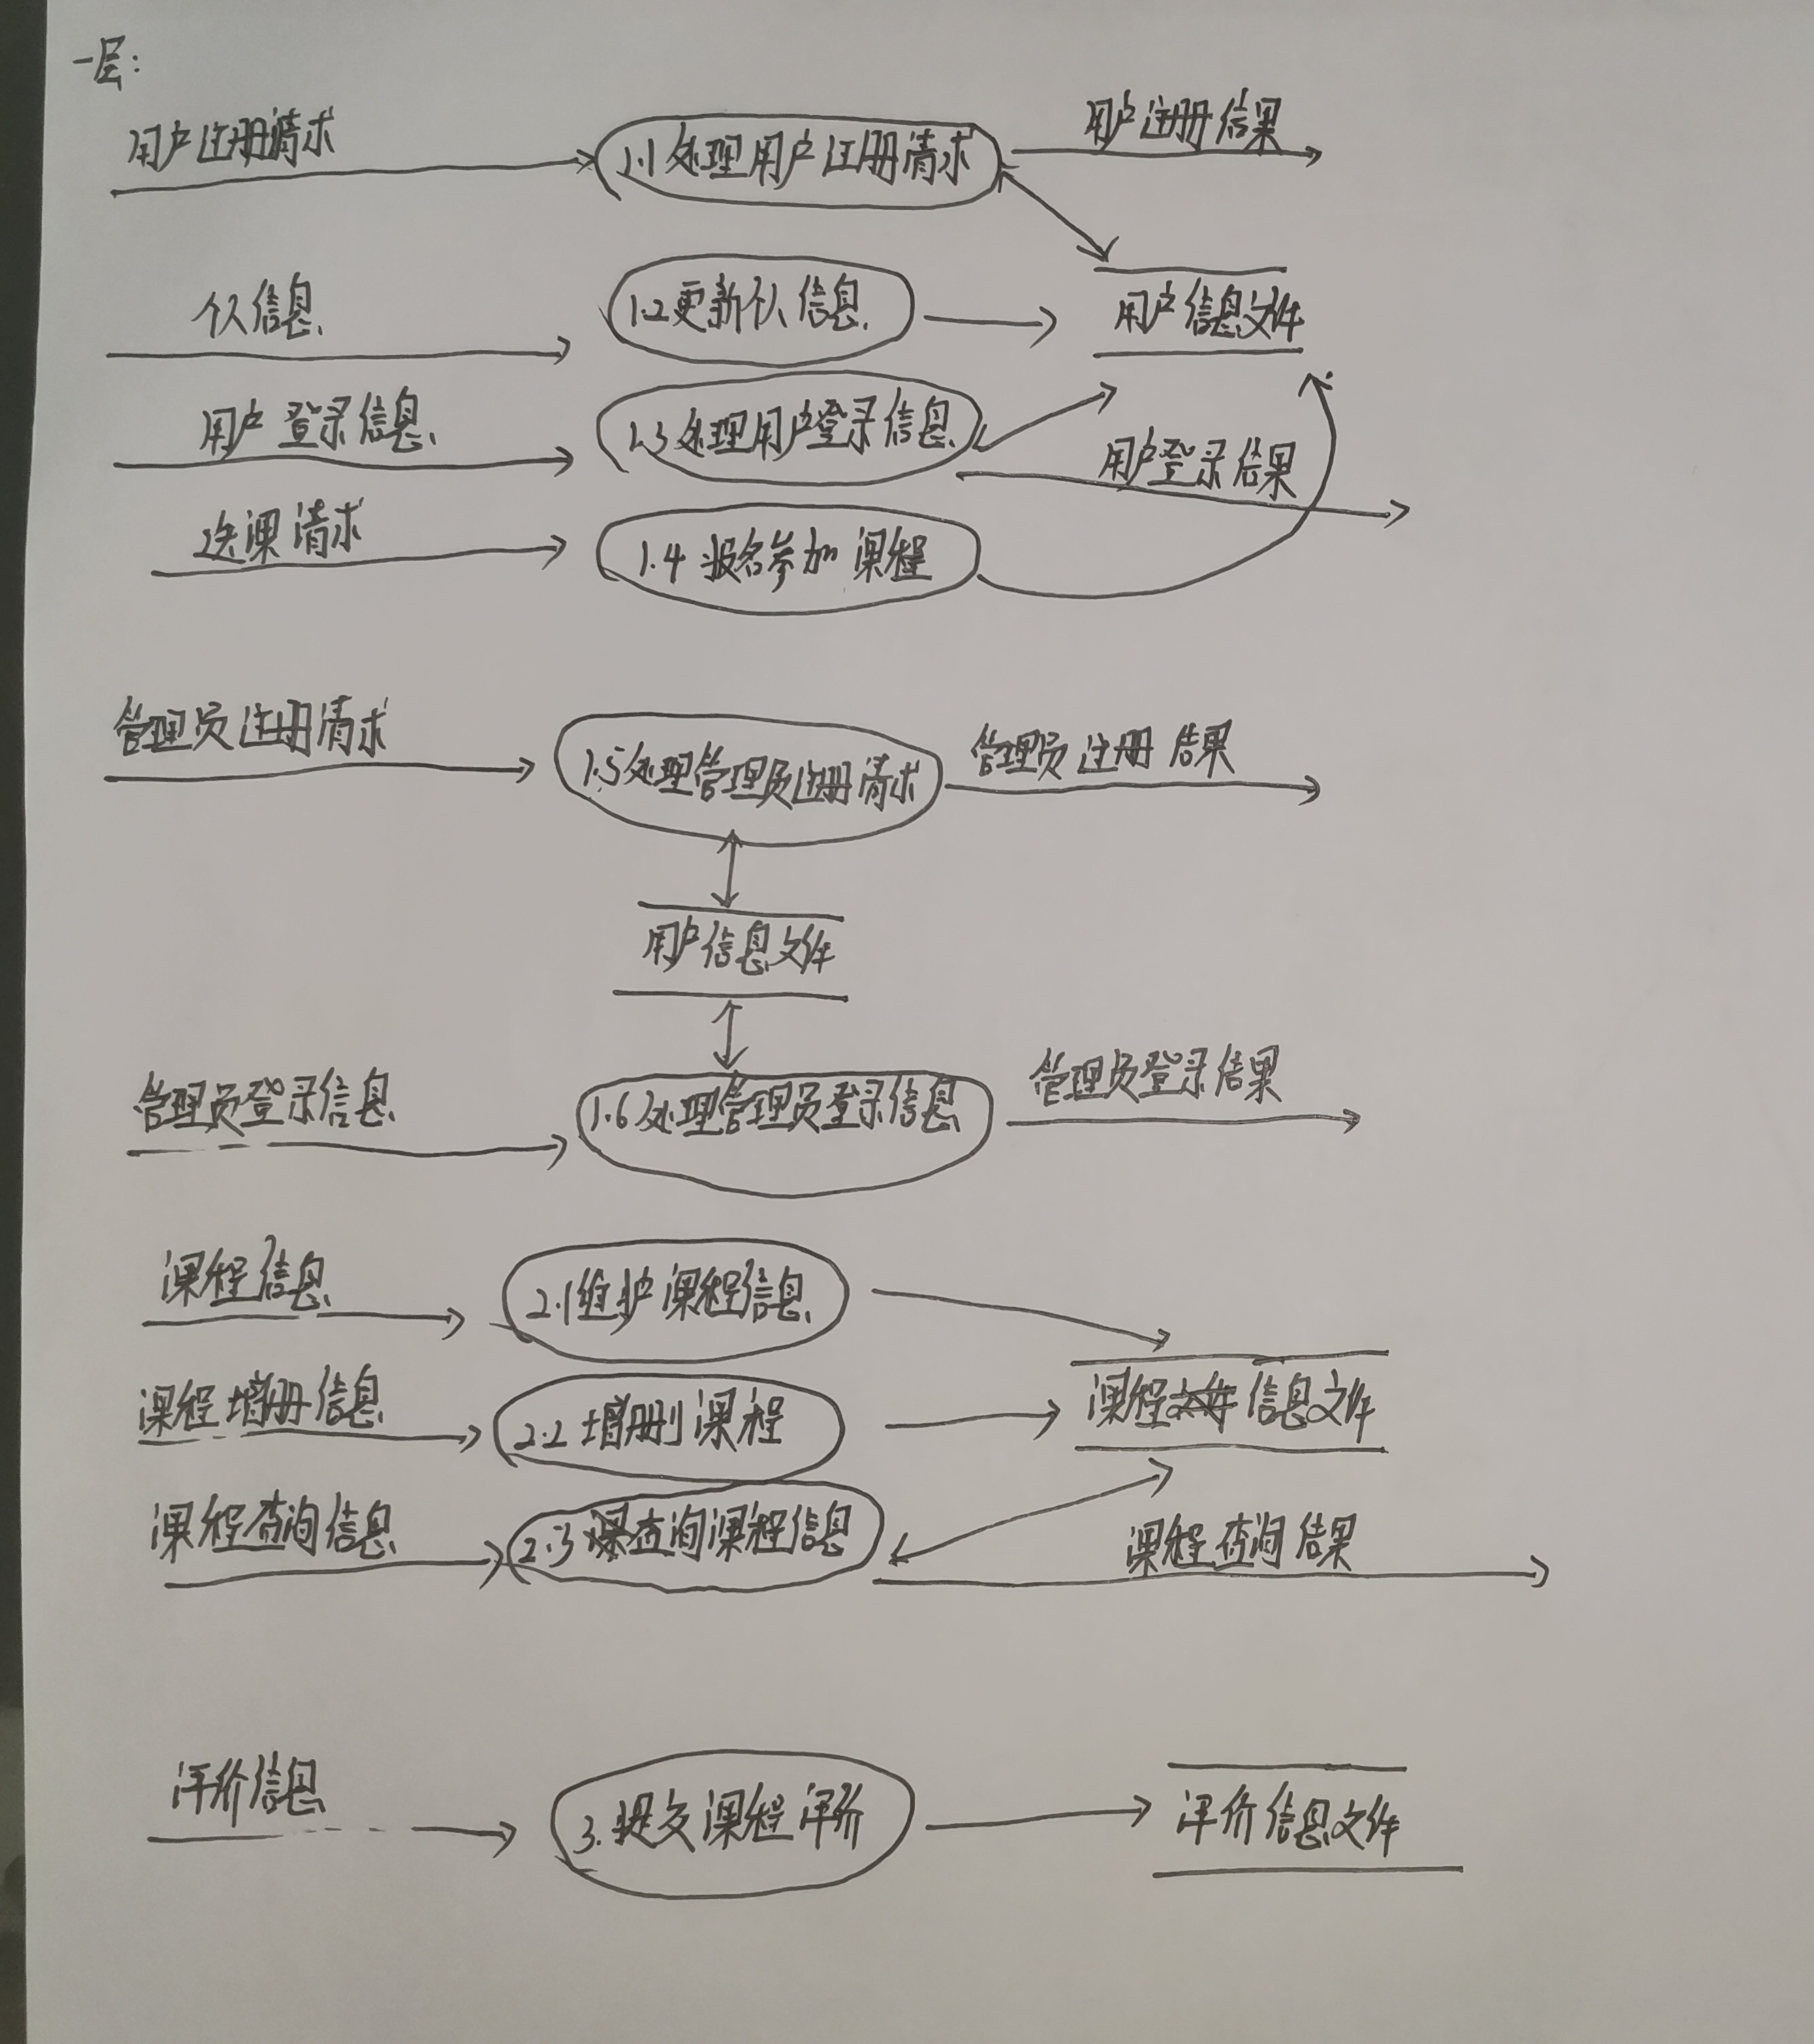 一层:
用户注册请求
1.1处理用户注册请求
用户注册结果
个人信息
1.2更新个人信息
用户信息文件
用户登录信息
1.3处理用户登录信息
用户登录结果
选课请求
1.4 报名参加课程
管理员注册请求
1.5处理管理员注册请求
管理员注册结果
用户信息文件
管理员登录信息
1.6处理管理员登录信息
管理员登录结果
课程信息
2.1维护课程信息
课程增册信息
2.2增删课程
课程信息文件
课程查询信息
2.3查询课程信息
课程查询结果
评价信息
3.提交课程评价
评价信息文件